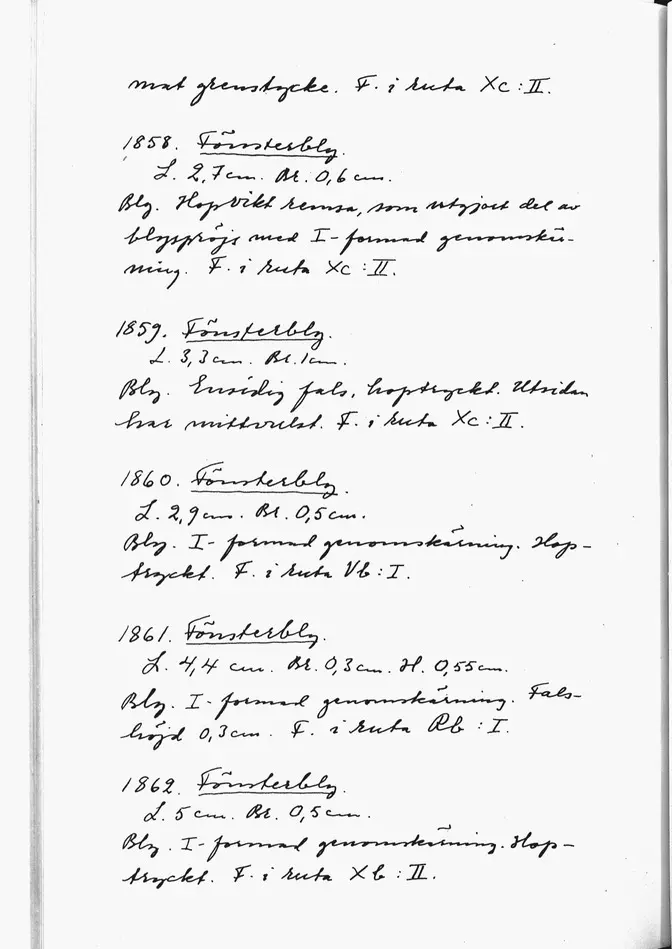 mat grenstycke. F. i ruta Xc:II.
1858. Fönsterbly.
L. 2,7 cm. Br. 0,6 cm.
Bly. Hopvikt remsa, som utgjort del av
blyspröjs med I-formad genomskär-
ning. F. i ruta Xc:II.
1859. Fönsterbly.
L. 3,3 cm. Br. 1 cm.
Bly. Ensidig fals, hoptryckt. Utsidan
har mittvulst. F. i ruta Xc:II.
1860. Fönsterbly.
L. 2,9 cm. Br. 0,5 cm.
Bly. I-formad genomskärning. Hop-
tryckt. F. i ruta Vb:I.
1861. Fönsterbly.
L. 4,4 cm. Br. 0,3 cm. H. 0,55 cm.
Bly. I-formad genomskärning. Fals-
höjd 0,3 cm. F. i ruta Rb:I.
1862. Fönsterbly.
L. 5 cm. Br. 0,5 cm.
Bly. I-formad genomskärning. Hop-
tryckt. F. i ruta Xb:II.